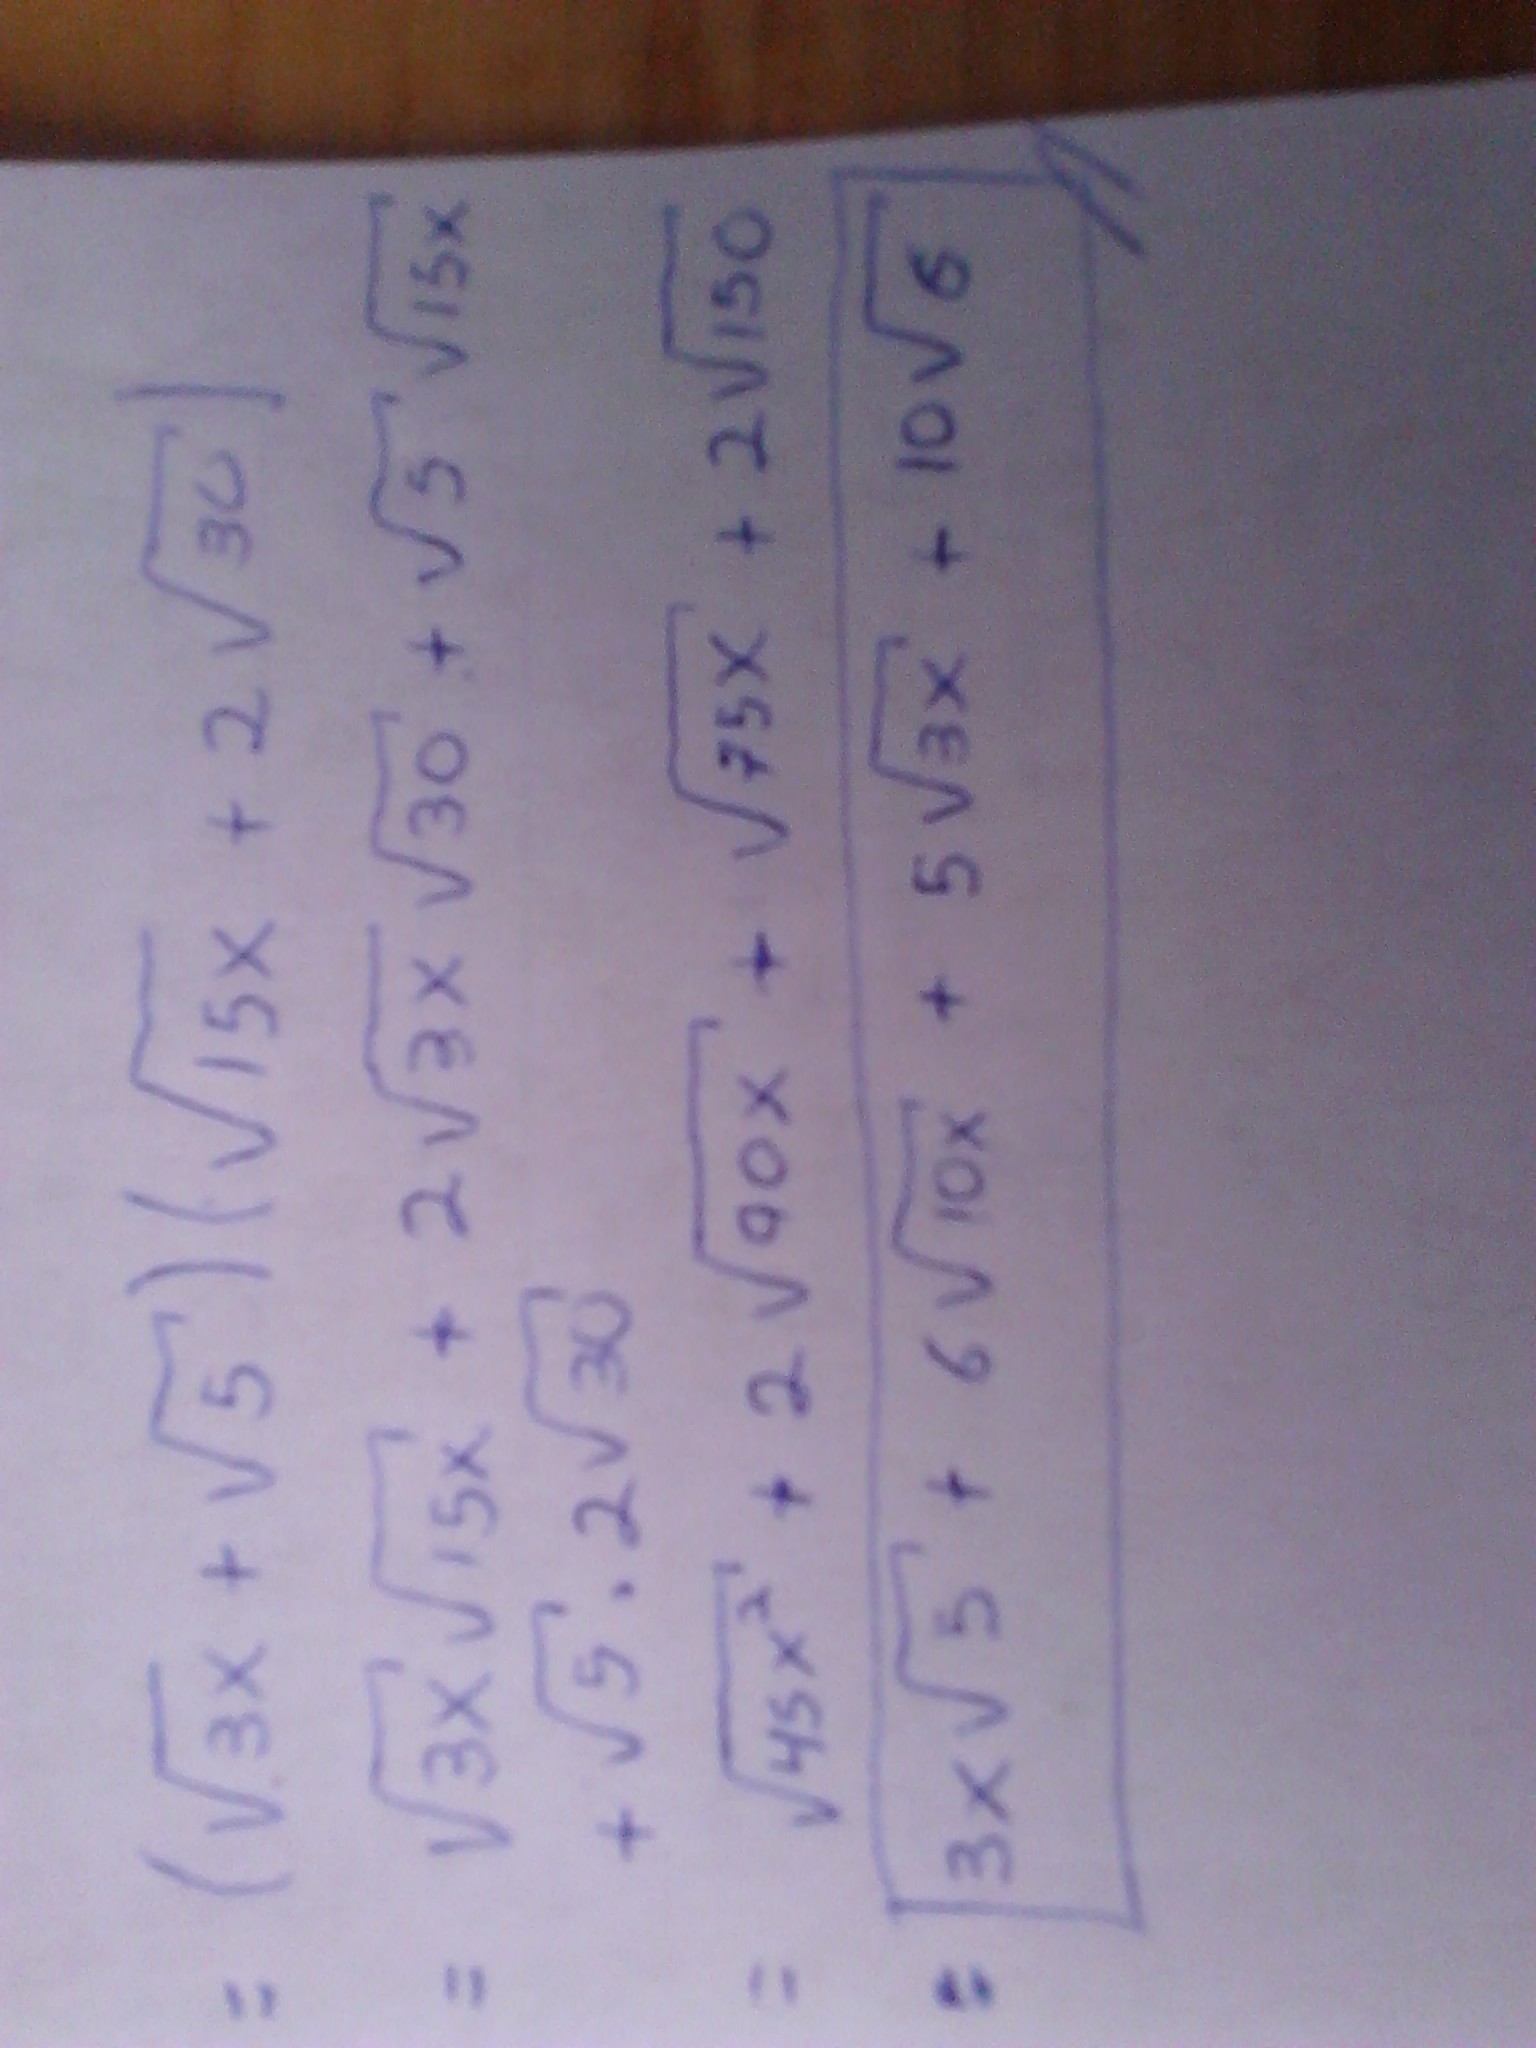 = (√3x + √5)(√15x + 2√30)
= √3x √15x + 2√3x √30 + √5 √15x
+ √5 · 2√30
= √45x² + 2√90x + √75x + 2√150
= 3x√5 + 6√10x + 5√3x + 10√6